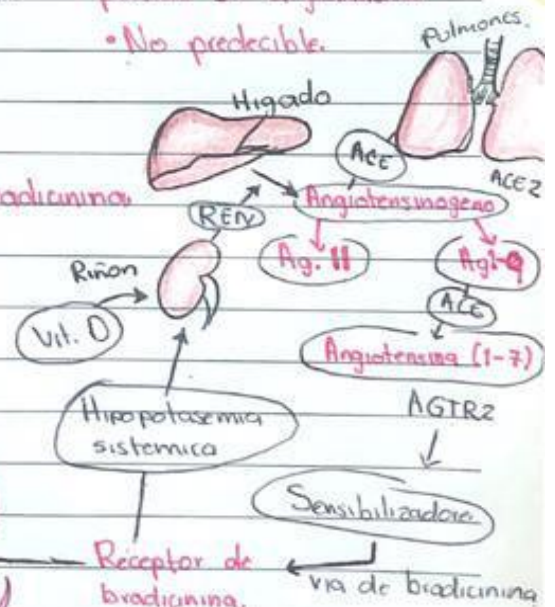 • No predecible.
Pulmones.
Higado
ACE
ACE2
adicinina
REN
Angiotensinogeno
Riñon
Ag. II
Ag1-9
Vit. D
ACE
Angiotensina (1-7)
Hipopotasemia
sistemica
AGTR2
Sensibilizadore
Receptor de
bradicinina.
via de bradicinina